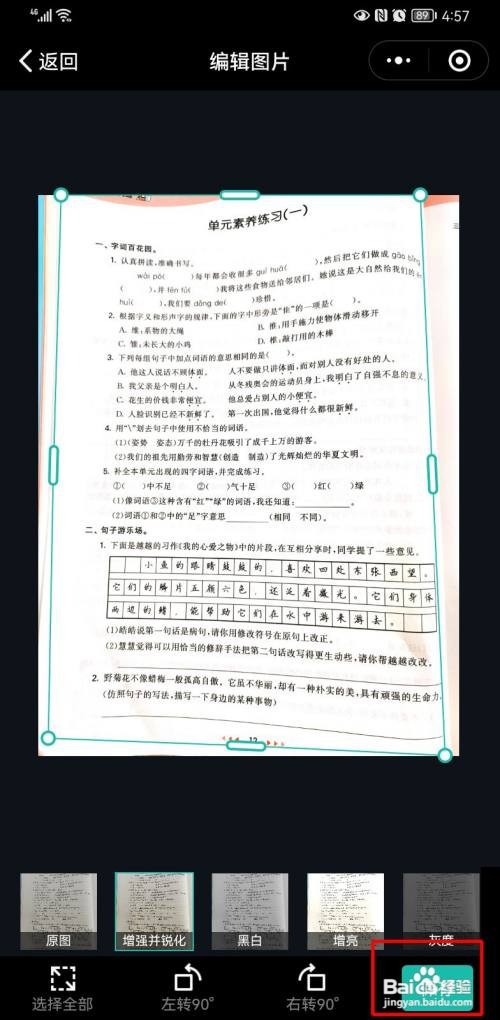 4G 89 4:57
返回 编辑图片
单元素养练习(一)
一、字词百花园。
1. 认真拼读,准确书写。
wài pó( )每年都会收很多 guī huā( ),然后把它们做成 gāo bǐng
( ),并 fēn fù( )我将这些食物送给邻居们。她说这是大自然给我们的
huì( ),我们要 dǒng de( )珍惜。
2. 根据字义和形声字的规律,下面的字中形旁是“隹”的一项是( )。
A. 维:系物的大绳 B. 推:用手施力使物体滑动移开
C. 雏:未长大的小鸡 D. 椎:敲打用的木棒
3. 下列每组句子中加点词语的意思相同的是( )。
A. 他这人说话不顾体面。 人不要做只讲体面,而对别人没有好处的人。
B. 我父亲是个明白人。 从冬残奥会的运动员身上,我明白了自强不息的意义。
C. 花生的价钱非常便宜。 他总爱占别人的小便宜。
D. 人脸识别已经不新鲜了。 第一次出国,他觉得什么都很新鲜。
4. 用“\”划去句子中使用不恰当的词语。
(1)(姿势 姿态)万千的牡丹花吸引了成千上万的游客。
(2)我们的祖先用勤劳和智慧(创造 制造)了光辉灿烂的华夏文明。
5. 补全本单元出现的四字词语,并完成练习。
①( )中不足 ②( )气十足 ③( )红( )绿
(1)像词语③这种含有“红”“绿”的词语,我还知道:
(2)词语①和②中的“足”字意思 (相同 不同)。
二、句子游乐场。
1. 下面是越越的习作《我的心爱之物》中的片段,在互相分享时,同学提了一些意见。
小鱼的眼睛鼓鼓的,喜欢四处东张西望。
它们的鳞片五颜六色,还泛着微光。它们身体
两边的鳍,能帮助它们在水中游来游去。
(1)皓皓说第一句话是病句,请你用修改符号在原句上改正。
(2)慧慧觉得可以用恰当的修辞手法把第二句话改写得更生动些,请你帮越越改改。
2. 野菊花不像蜡梅一般孤高自傲,它虽不华丽,却有一种朴实的美,具有顽强的生命力。
(仿照句子的写法,描写一下身边的某种事物)
12
原图 增强并锐化 黑白 增亮 灰度
选择全部 左转90° 右转90°
Baidu经验
jingyan.baidu.com